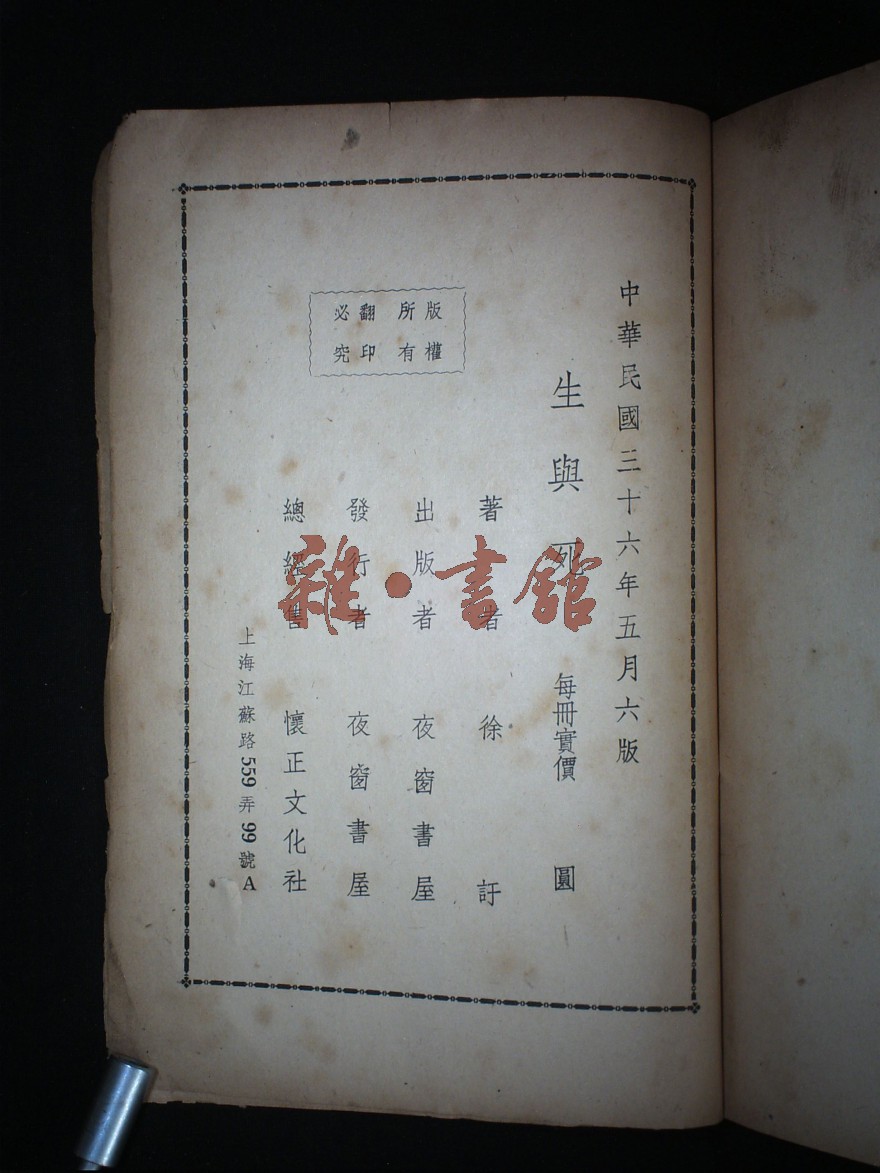 中華民國三十六年五月六版
生與死 每冊實價 圓
著者 徐訏
出版者 夜窗書屋
發行者 夜窗書屋
總經售 懷正文化社
上海江蘇路559弄99號A
版權
所有
翻印
必究
雜·書館